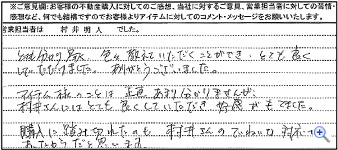 ※ご意見欄:お客様の不動産購入に対してのご感想、当社に対するご意見、営業担当者に対しての苦情・
感想など、何でも結構ですのでお客様よりアイテムに対してのコメント・メッセージをお願いいたします。
営業担当者は 村井明人 でした。
色々教えていただくことができ、とても良く
していただけました。ありがとうございました。
アイテム様のことは正直あまり分かりませんが、
村井さんにはとても良くしていただき好感がもてました。
購入に踏み切れたのも村井さんのていねいな対応が
あったからだと思います。